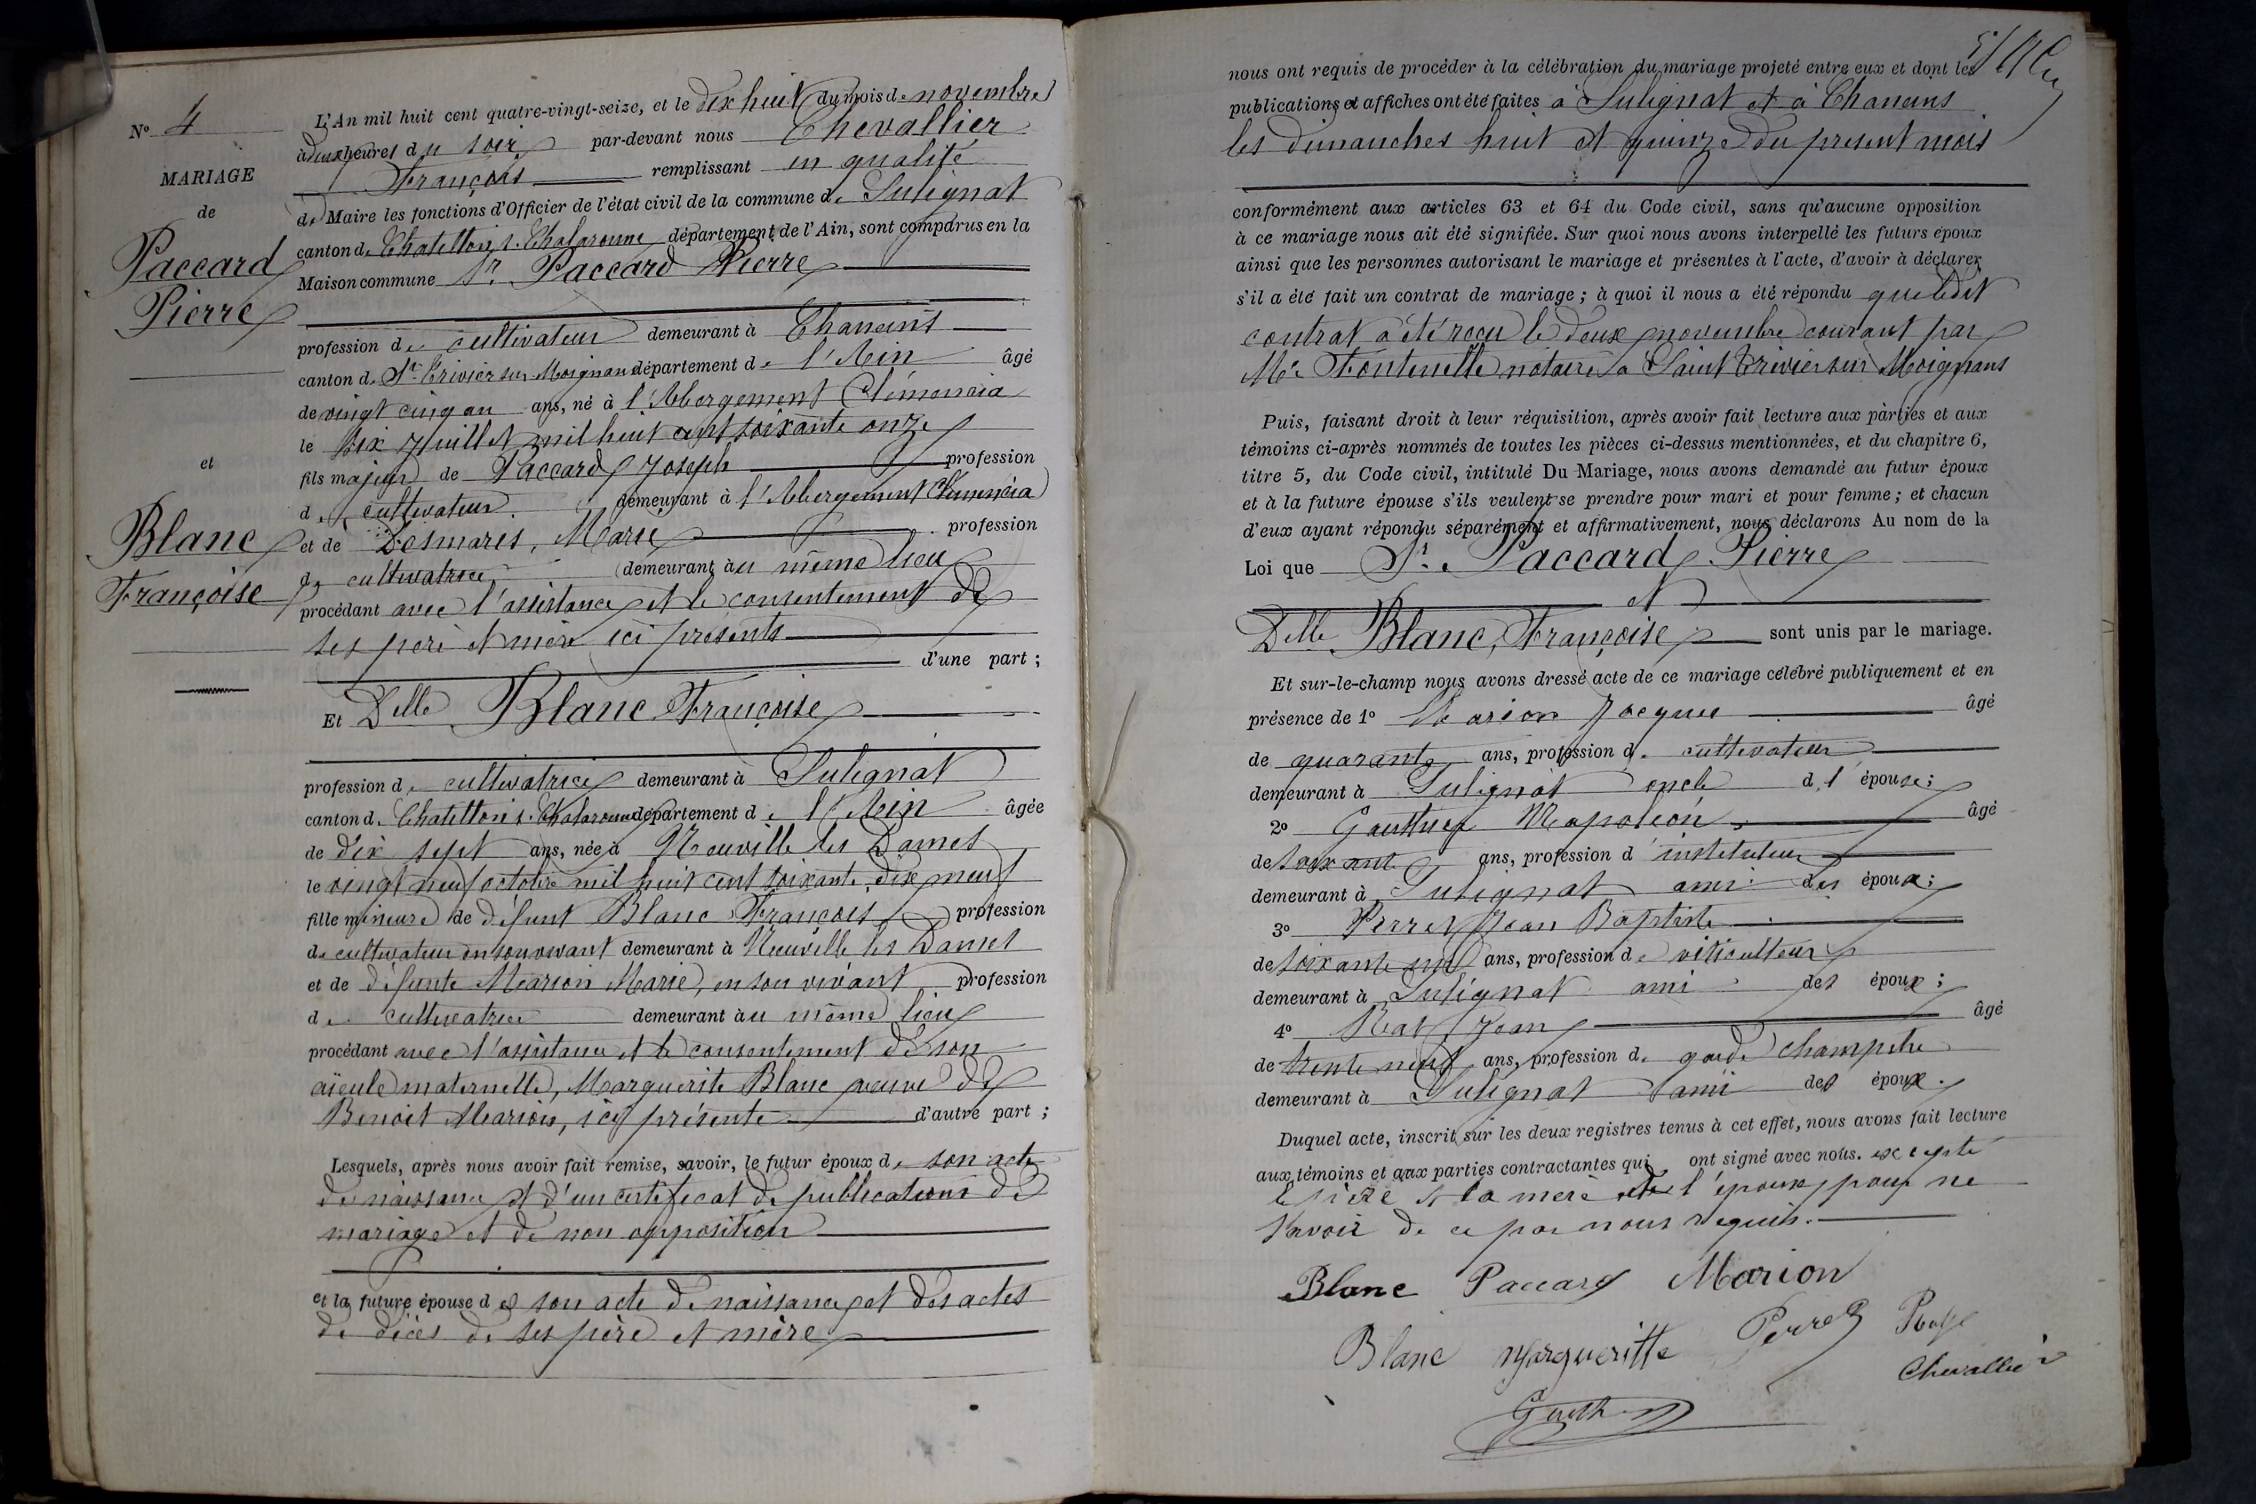 N° 4
MARIAGE
de
Paccard
Pierre
et
Blanc
Françoise
L'An mil huit cent quatre-vingt-seize, et le dix huit du mois de novembre
à deux heures du soir par-devant nous Chevallier
François remplissant en qualité
de Maire les fonctions d'Officier de l'état civil de la commune de Sulignat
canton de Chatillon s. Chalaronne département de l'Ain, sont comparus en la
Maison commune Sr. Paccard Pierre
profession de cultivateur demeurant à Chaneins
canton de St. Trivier sur Moignans département de l'Ain âgé
de vingt cinq an ans, né à l'Abergement Clémencia
le six juillet mil huit cent soixante onze
fils majeur de Paccard Joseph profession
de cultivateur demeurant à l'Abergement Clémencia
et de Desmaris, Marie profession
de cultivatrice demeurant au même lieu
procédant avec l'assistance et le consentement de
ses père et mère ici présents
d'une part ;
Et Delle Blanc Françoise
profession de cultivatrice demeurant à Sulignat
canton de Chatillon s. Chalaronne département de l'Ain âgée
de dix sept ans, née à Neuville les Dames
le vingt neuf octobre mil huit cent soixante dix neuf
fille mineure de défunt Blanc François profession
de cultivateur en son vivant demeurant à Neuville les Dames
et de défunte Marion Marie, en son vivant profession
de cultivatrice demeurant au même lieu
procédant avec l'assistance et le consentement de son
aïeule maternelle, Marguerite Blanc veuve de
Benoit Marion, ici présente d'autre part ;
Lesquels, après nous avoir fait remise, savoir, le futur époux de son acte
de naissance et d'un certificat de publications de
mariage et de non opposition
et la future épouse de son acte de naissance et des actes
de décès de ses père et mère
nous ont requis de procéder à la célébration du mariage projeté entre eux et dont les
publications et affiches ont été faites à Sulignat et à Chaneins
les dimanches huit et quinze du present mois
conformément aux articles 63 et 64 du Code civil, sans qu'aucune opposition
à ce mariage nous ait été signifiée. Sur quoi nous avons interpellé les futurs époux
ainsi que les personnes autorisant le mariage et présentes à l'acte, d'avoir à déclarer
s'il a été fait un contrat de mariage ; à quoi il nous a été répondu que ledit
contrat a été recu le deux novembre courant par
Me. Fontenelle notaire à Saint Trivier sur Moignans
Puis, faisant droit à leur réquisition, après avoir fait lecture aux parties et aux
témoins ci-après nommés de toutes les pièces ci-dessus mentionnées, et du chapitre 6,
titre 5, du Code civil, intitulé Du Mariage, nous avons demandé au futur époux
et à la future épouse s'ils veulent se prendre pour mari et pour femme ; et chacun
d'eux ayant répondu séparément et affirmativement, nous déclarons Au nom de la
Loi que Sr. Paccard Pierre
et
Delle Blanc, Françoise sont unis par le mariage.
Et sur-le-champ nous avons dressé acte de ce mariage célébré publiquement et en
présence de 1° Marion Jacques âgé
de quarante ans, profession de cultivateur
demeurant à Sulignat oncle de l'épouse ;
2° Gauthier Napoléon âgé
de soixante ans, profession d'instituteur
demeurant à Sulignat ami des époux ;
3° Perret Jean Baptiste
de soixante un ans, profession de viticulteur
demeurant à Sulignat ami des époux ;
4° Rat Jean âgé
de trente neuf ans, profession de garde champêtre
demeurant à Sulignat ami des époux.
Duquel acte, inscrit sur les deux registres tenus à cet effet, nous avons fait lecture
aux témoins et aux parties contractantes qui ont signé avec nous. excepté
le père et la mère de l'époux pour ne
savoir de ce par nous requis.
Blanc Paccard Marion
Blanc Margueritte Perret
Chevallier
Gauthier